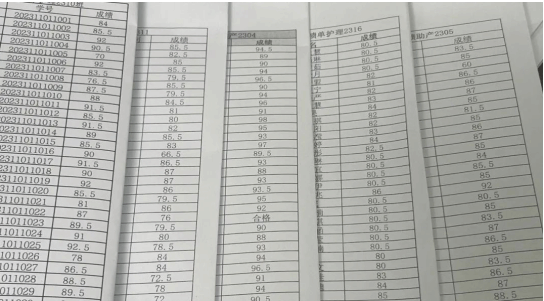 学号 成绩
202311011001 84
202311011002 85.5
202311011003 92
202311011004 90.5
202311011005 70
202311011006 92
202311011007 83.5
202311011008 76.5
202311011009 87.5
202311011010 88
202311011011 91.5
202311011012 85.5
202311011013 91.5
202311011014 89
202311011015 85.5
202311011016 90
202311011017 91.5
2311011018 90
2311011019 92
311011020 85.5
311011021 81
311011022 87
11011023 89.5
11011024 91
11011025 92.5
11011026 78
1011027 86.5
1011028 88.5
011029 89.5
成绩
85.5
82.5
85
79.5
85.5
79.5
84.5
81
80
82
83
66.5
86.5
87
87
86
79.5
86
76
79.5
78.5
84
84
72.5
78
72
产2304
成绩
94.5
89
90
94
96.5
90
94
90
91
98
95
93
97
89.5
93
88
93
93.5
95
92
合格
90
88
93
94
96.5
91
94
90.5
护理2316
成绩
80.5
80.5
80.5
80.5
82
81
82
83
84
82
82
83
84
82.5
80.5
80.5
80.5
80.5
80.5
80.5
80.5
80.5
80.5
80
84
83
80.5
助产2305
成绩
83.5
85
60
86.5
86
87
85
81.5
85
86
87
85
84
85.5
92
80.5
85
83.5
87
86.5
85
83.5
86.5
87
88.5